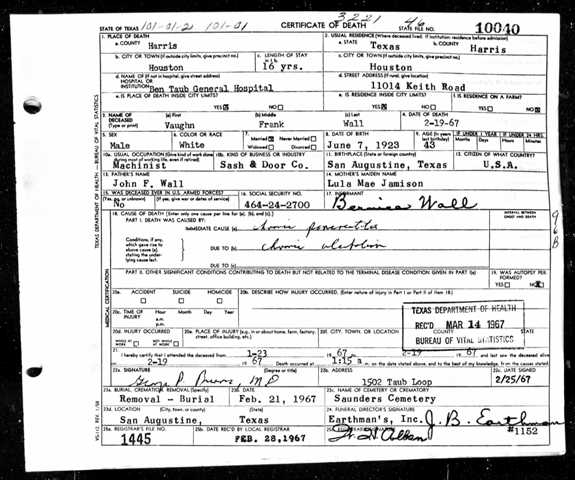 3221
STATE OF TEXAS 101-01-2 101-01 CERTIFICATE OF DEATH STATE FILE NO. 46 10040
1. PLACE OF DEATH
a. COUNTY Harris
2. USUAL RESIDENCE (Where deceased lived. If institution: residence before admission)
a. STATE Texas b. COUNTY Harris
b. CITY OR TOWN (If outside city limits, give precinct no.) Houston
c. LENGTH OF STAY 16 yrs.
c. CITY OR TOWN (If outside city limits, give precinct no.) Houston
d. NAME OF (If not in hospital, give street address) HOSPITAL OR INSTITUTION Ben Taub General Hospital
d. STREET ADDRESS (If rural, give location) 11014 Keith Road
e. IS PLACE OF DEATH INSIDE CITY LIMITS? YES NO
e. IS RESIDENCE INSIDE CITY LIMITS? YES NO
f. IS RESIDENCE ON A FARM? YES NO
3. NAME OF DECEASED (Type or print) (a) First Vaughn (b) Middle Frank (c) Last Wall
4. DATE OF DEATH 2-19-67
5. SEX Male
6. COLOR OR RACE White
7. Married Never Married Widowed Divorced
8. DATE OF BIRTH June 7, 1923
9. AGE (In years last birthday) 43 IF UNDER 1 YEAR IF UNDER 24 HRS.
10a. USUAL OCCUPATION (Give kind of work done during most of working life, even if retired) Machinist
10b. KIND OF BUSINESS OR INDUSTRY Sash & Door Co.
11. BIRTHPLACE (State or foreign country) San Augustine, Texas
12. CITIZEN OF WHAT COUNTRY? U.S.A.
13. FATHER'S NAME John F. Wall
14. MOTHER'S MAIDEN NAME Lula Mae Jamison
15. WAS DECEASED EVER IN U.S. ARMED FORCES? (If yes, give war or dates of service) No
16. SOCIAL SECURITY NO. 464-24-2700
17. INFORMANT Bernice Wall
18. CAUSE OF DEATH [Enter only one cause per line for (a), (b), and (c).]
INTERVAL BETWEEN ONSET AND DEATH
PART I. DEATH WAS CAUSED BY:
IMMEDIATE CAUSE (a) chronic pancreatitis
Conditions, if any, which gave rise to above cause (a), stating the underlying cause last.
DUE TO (b) chronic
DUE TO (c)
PART II. OTHER SIGNIFICANT CONDITIONS CONTRIBUTING TO DEATH BUT NOT RELATED TO THE TERMINAL DISEASE CONDITION GIVEN IN PART I(a)
19. WAS AUTOPSY PERFORMED? YES NO
20a. ACCIDENT SUICIDE HOMICIDE
20b. DESCRIBE HOW INJURY OCCURRED. (Enter nature of injury in Part I or Part II of item 18.)
20c. TIME OF INJURY Hour Month Day Year a.m. p.m.
20d. INJURY OCCURRED WHILE AT WORK NOT WHILE AT WORK
20e. PLACE OF INJURY (e.g., in or about home, farm, factory, street, office building, etc.)
20f. CITY, TOWN, OR LOCATION COUNTY STATE
TEXAS DEPARTMENT OF HEALTH
REC'D MAR 14 1967
BUREAU OF VITAL STATISTICS
21. I hereby certify that I attended the deceased from 1-23 67 2-19 67 and last saw the deceased alive
2-19 67 Death occurred at 1:15 a m on the date stated above, and to the best of my knowledge, from the causes stated.
22a. SIGNATURE (Degree or title) M D
22b. ADDRESS 1502 Taub Loop
22c. DATE SIGNED 2/25/67
23a. BURIAL, CREMATION, REMOVAL (Specify) Removal - Burial
23b. DATE Feb. 21, 1967
23c. NAME OF CEMETERY OR CREMATORY Saunders Cemetery
23d. LOCATION San Augustine, Texas
24. FUNERAL DIRECTOR'S SIGNATURE Earthman's, Inc. J. B. Earthman #1152
25a. REGISTRAR'S FILE NO. 1445
25b. DATE REC'D BY LOCAL REGISTRAR FEB. 28, 1967
TEXAS DEPARTMENT OF HEALTH - BUREAU OF VITAL STATISTICS
MEDICAL CERTIFICATION